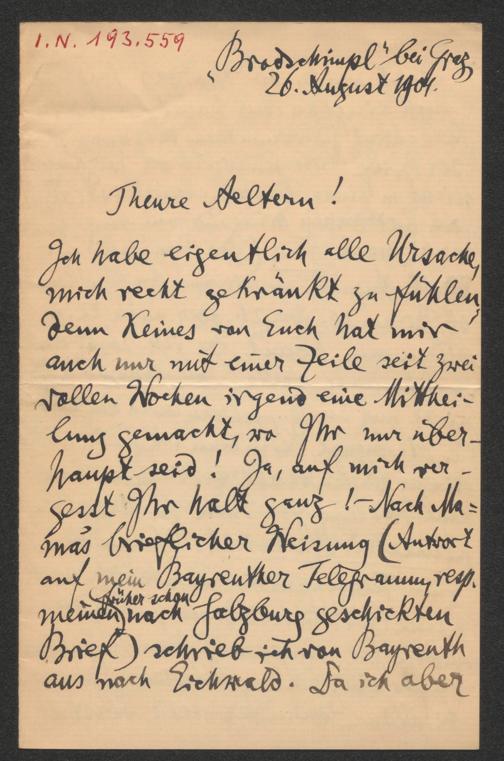 I.N. 193.559
„Brodschimpl" bei Graz,
26. August 1901.
Theure Aeltern!
Ich habe eigentlich alle Ursache,
mich recht gekränkt zu fühlen,
denn Keines von Euch hat mir
auch nur mit einer Zeile seit zwei
vollen Wochen irgend eine Mitthei-
lung gemacht, wo Ihr nur über-
haupt seid! Ja, auf mich ver-
gesst Ihr halt ganz! – Nach Ma=
mas brieflicher Weisung (Antwort
auf mein Bayreuther Telegramm, resp.
früher schon
meinen nach Salzburg geschickten
Brief) schrieb ich von Bayreuth
aus nach Eichwald. Da ich aber